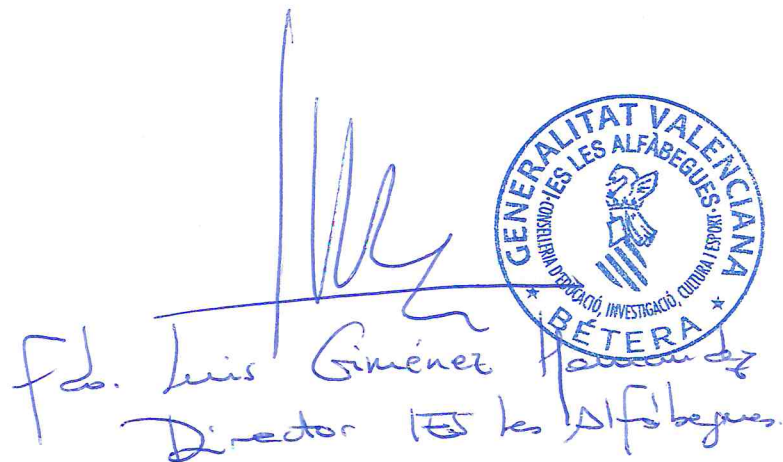 GENERALITAT VALENCIANA
·IES LES ALFÀBEGUES·
CONSELLERIA D'EDUCACIÓ, INVESTIGACIÓ, CULTURA I ESPORT
★ BÉTERA ★
Fdo. Luis Giménez
Director IES les Alfàbegues.